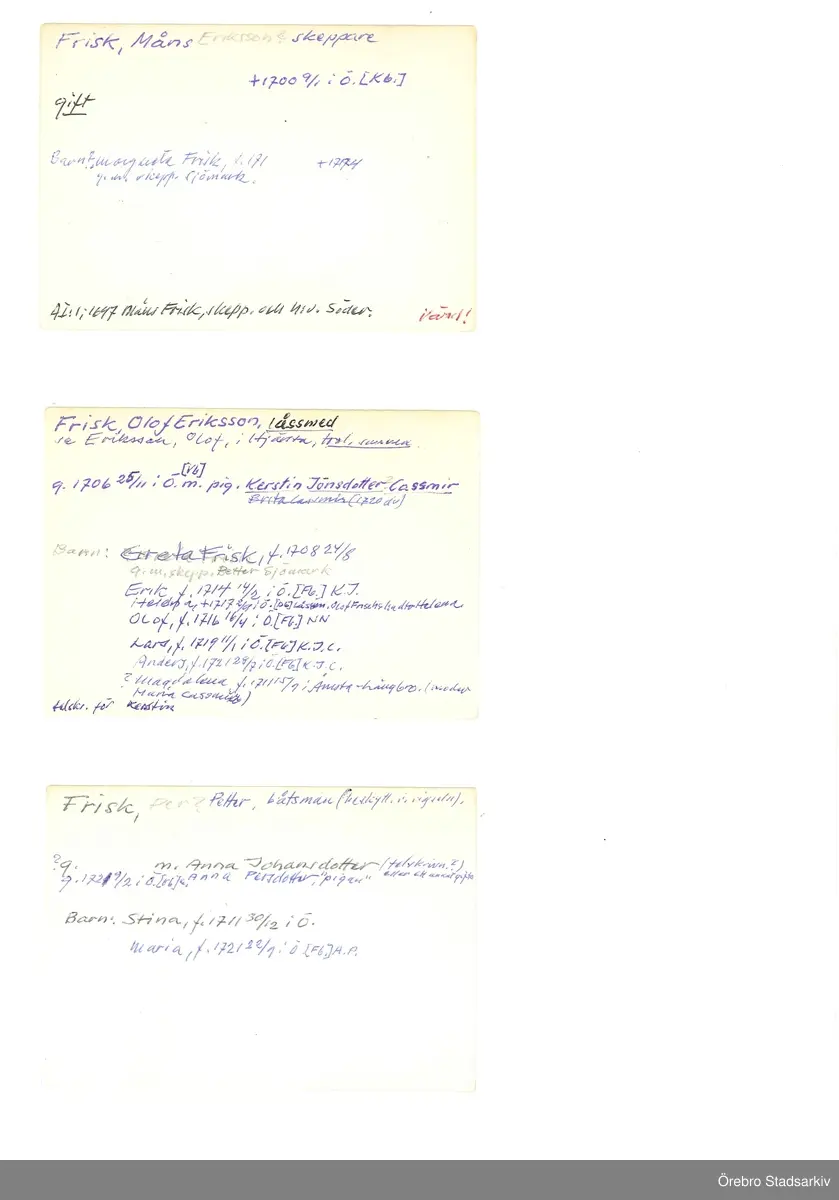 Frisk, Måns Eriksson? skeppare
+1700 9/1 i Ö. [Kb.]
gift
Barn?: Margareta Frisk, f. 171 +1774
g. m. skepp. Sjömark.
AI:1; 1697 Måns Frisk, skepp. och h:v. Söder. i vård!
Frisk, Olof Eriksson, låssmed
se Eriksson, Olof, i Hjärsta, trol. samma.
g. 1706 25/11 i Ö. [Vb] m. pig. Kerstin Jönsdotter Cassmir
Brita Casmir (1720 dv)
Barn: Greta Frisk, f. 1708 24/8
g. m. skepp. Petter Sjömark
Erik, f. 1714 14/2 i Ö. [Fb.] K.J.
i Ö. [Db] Låssm. Olof Frisks
Olof, f. 1716 16/4 i Ö. [Fb.] NN
Lars, f. 1719 11/1 i Ö. [Fb.] K.J.C.
Anders, f. 1721 29/7 i Ö. [Fb] K.J.C.
? Magdalena f. 1711 15/7 i Ånsta-Hängbro. (moder
Maria Casmir)
felskr. för Kerstin
Frisk, Per? Petter, båtsman
?g. m. Anna Johansdotter (felskrivn.?)
g. 1721 9/2 i Ö. [Vb] m. Anna Persdotter, "pigan" eller ett annat gifte
Barn: Stina, f. 1711 30/12 i Ö.
Maria, f. 1721 22/7 i Ö [Fb.] A.P.
Örebro Stadsarkiv